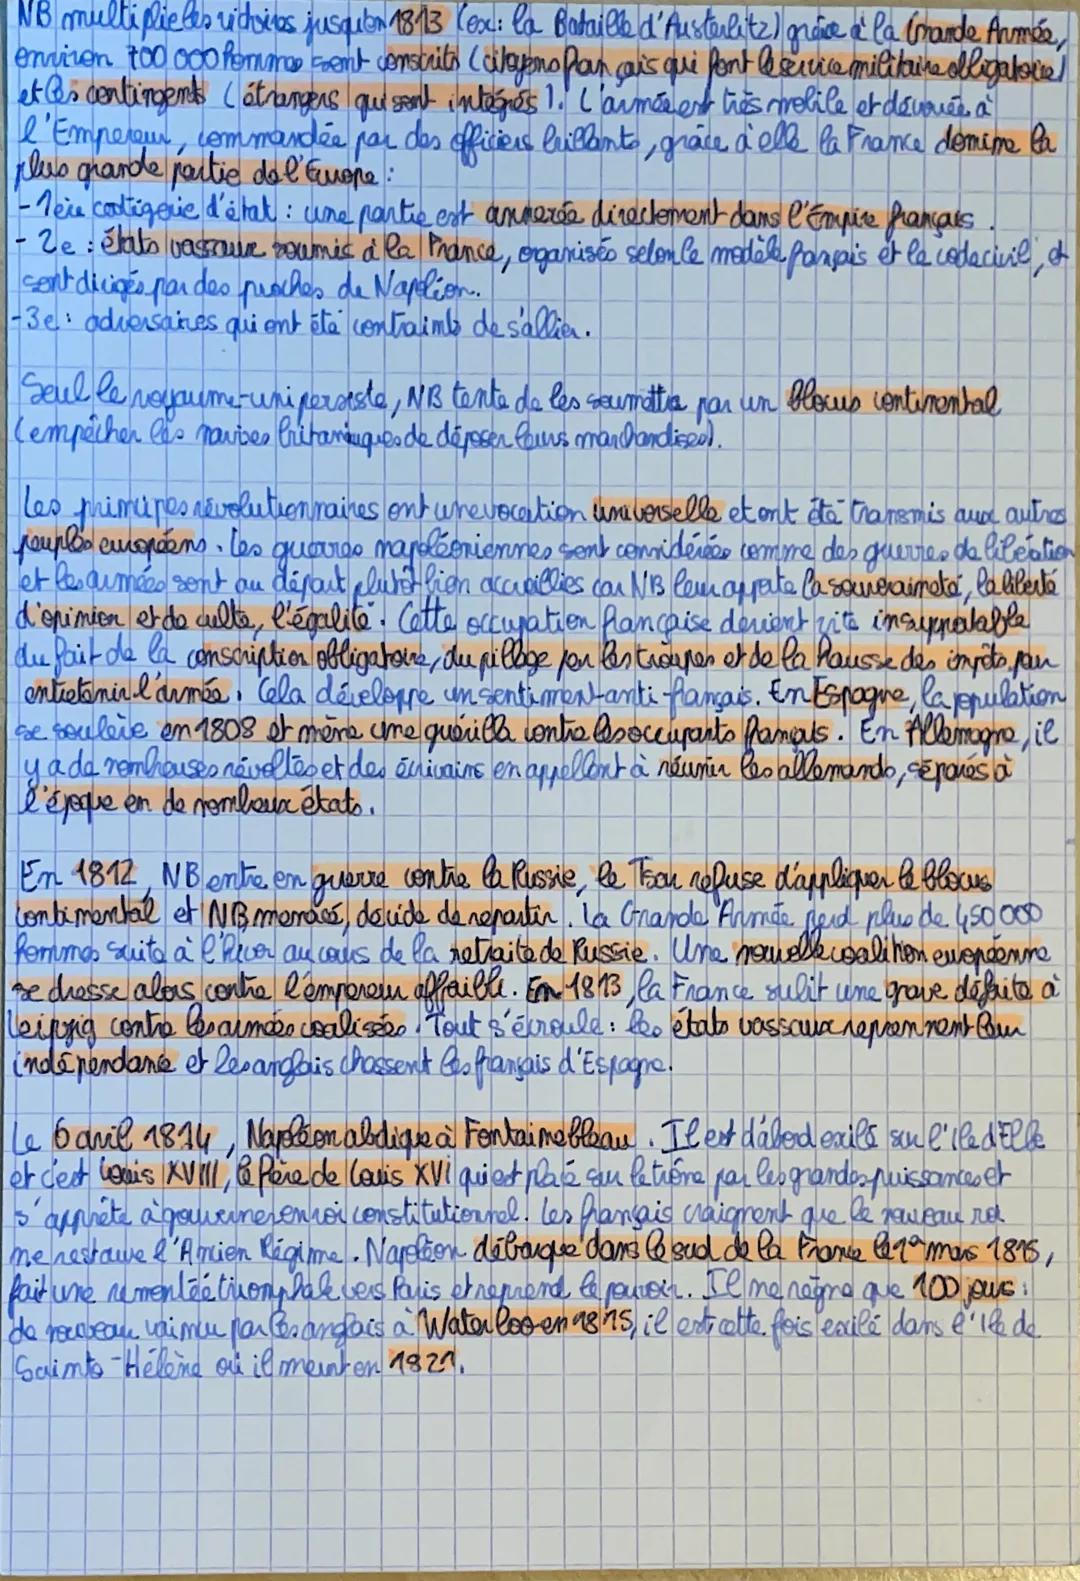 NB multiplie les victoires jusqu'en 1813 (ex: la Bataille d'Austerlitz) grâce à la Grande Armée,
environ 700 000 hommes sont conscrits (citoyens français qui font le service militaire obligatoire)
et les contingents (étrangers qui sont intégrés). L'armée est très mobile et dévouée à
l'Empereur, commandée par des officiers brillants, grâce à elle la France domine la
plus grande partie de l'Europe :
- 1ère catégorie d'état : une partie est annexée directement dans l'Empire français.
- 2e : états vassaux soumis à la France, organisés selon le modèle français et le code civil, et
sont dirigés par des proches de Napoléon.
- 3e : adversaires qui ont été contraints de s'allier.
Seul le royaume-uni persiste, NB tente de les soumettre par un blocus continental
(empêcher les navires britaniques de déposer leurs marchandises).
Les principes révolutionnaires ont une vocation universelle et ont été transmis aux autres
peuples européens. Les guerres napoléoniennes sont considérées comme des guerres de libération
et les armées sont au départ plutôt bien accueillies car NB leur apporte la souveraineté, la liberté
d'opinion et de culte, l'égalité. Cette occupation française devient vite insupportable
du fait de la conscription obligatoire, du pillage par les troupes et de la hausse des impôts pour
entretenir l'armée. Cela développe un sentiment anti-français. En Espagne, la population
se soulève en 1808 et mène une guérilla contre les occupants français. En Allemagne, il
y a de nombreuses révoltes et des écrivains en appellent à réunir les allemands, séparés à
l'époque en de nombreux états.
En 1812, NB entre en guerre contre la Russie, le Tsar refuse d'appliquer le blocus
continental et NB menacé, décide de repartir. La Grande Armée perd plus de 450 000
hommes suite à l'hiver au cours de la retraite de Russie. Une nouvelle coalition européenne
se dresse alors contre l'empereur affaibli. En 1813, la France subit une grave défaite à
Leipzig contre les armées coalisées. Tout s'écroule : les états vassaux reprennent leur
indépendance et les anglais chassent les français d'Espagne.
Le 6 avril 1814, Napoléon abdique à Fontainebleau. Il est d'abord exilé sur l'île d'Elbe
et c'est Louis XVIII, le frère de Louis XVI qui est placé sur le trône par les grandes puissances et
s'apprête à gouverner en roi constitutionnel. Les français craignent que le nouveau roi
ne restaure l'Ancien Régime. Napoléon débarque dans le sud de la France le 1er mars 1815,
fait une remontée triomphale vers Paris et reprend le pouvoir. Il ne règne que 100 jours :
de nouveau vaincu par les anglais à Waterloo en 1815, il est cette fois exilé dans l'île de
Sainte-Hélène où il meurt en 1821.